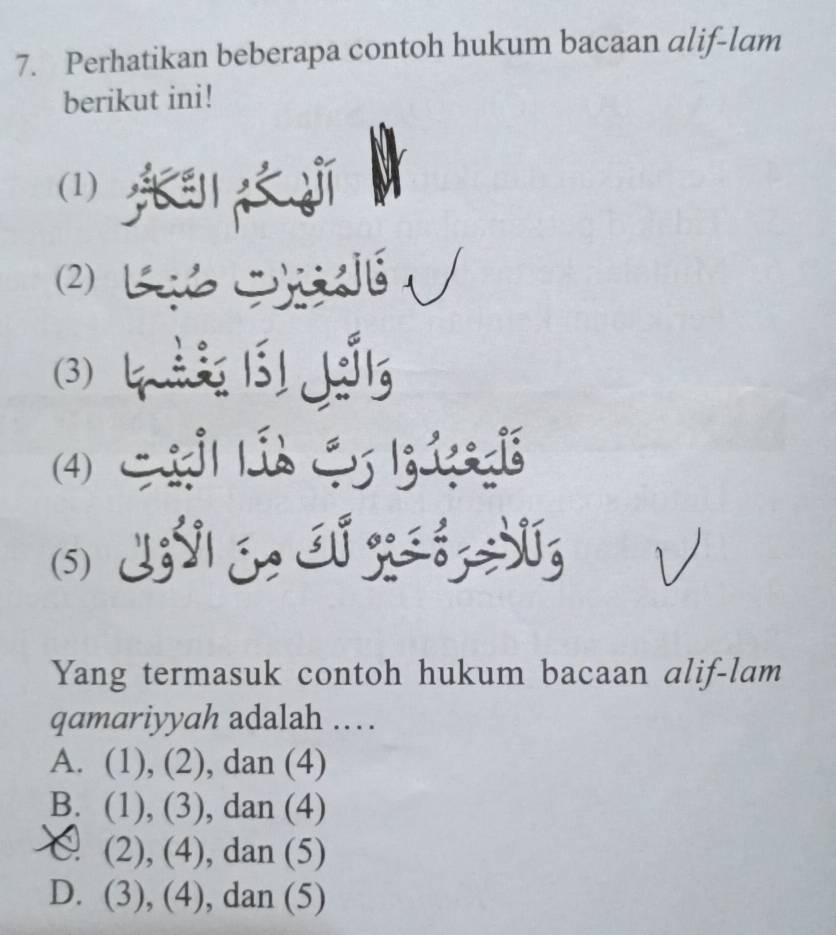 7. Perhatikan beberapa contoh hukum bacaan alif-lam
berikut ini!
(1) أَلْهٰىكُمُ التَّكَاثُرُ
(2) فَالْمُغِيْرٰتِ صُبْحًا
(3) وَالَّيْلِ إِذَا يَغْشٰىهَا
(4) فَلْيَعْبُدُوْا رَبَّ هٰذَا الْبَيْتِ
(5) وَلَلْاٰخِرَةُ خَيْرٌ لَّكَ مِنَ الْأُوْلٰى
Yang termasuk contoh hukum bacaan alif-lam
qamariyyah adalah ....
A. (1), (2), dan (4)
B. (1), (3), dan (4)
C. (2), (4), dan (5)
D. (3), (4), dan (5)